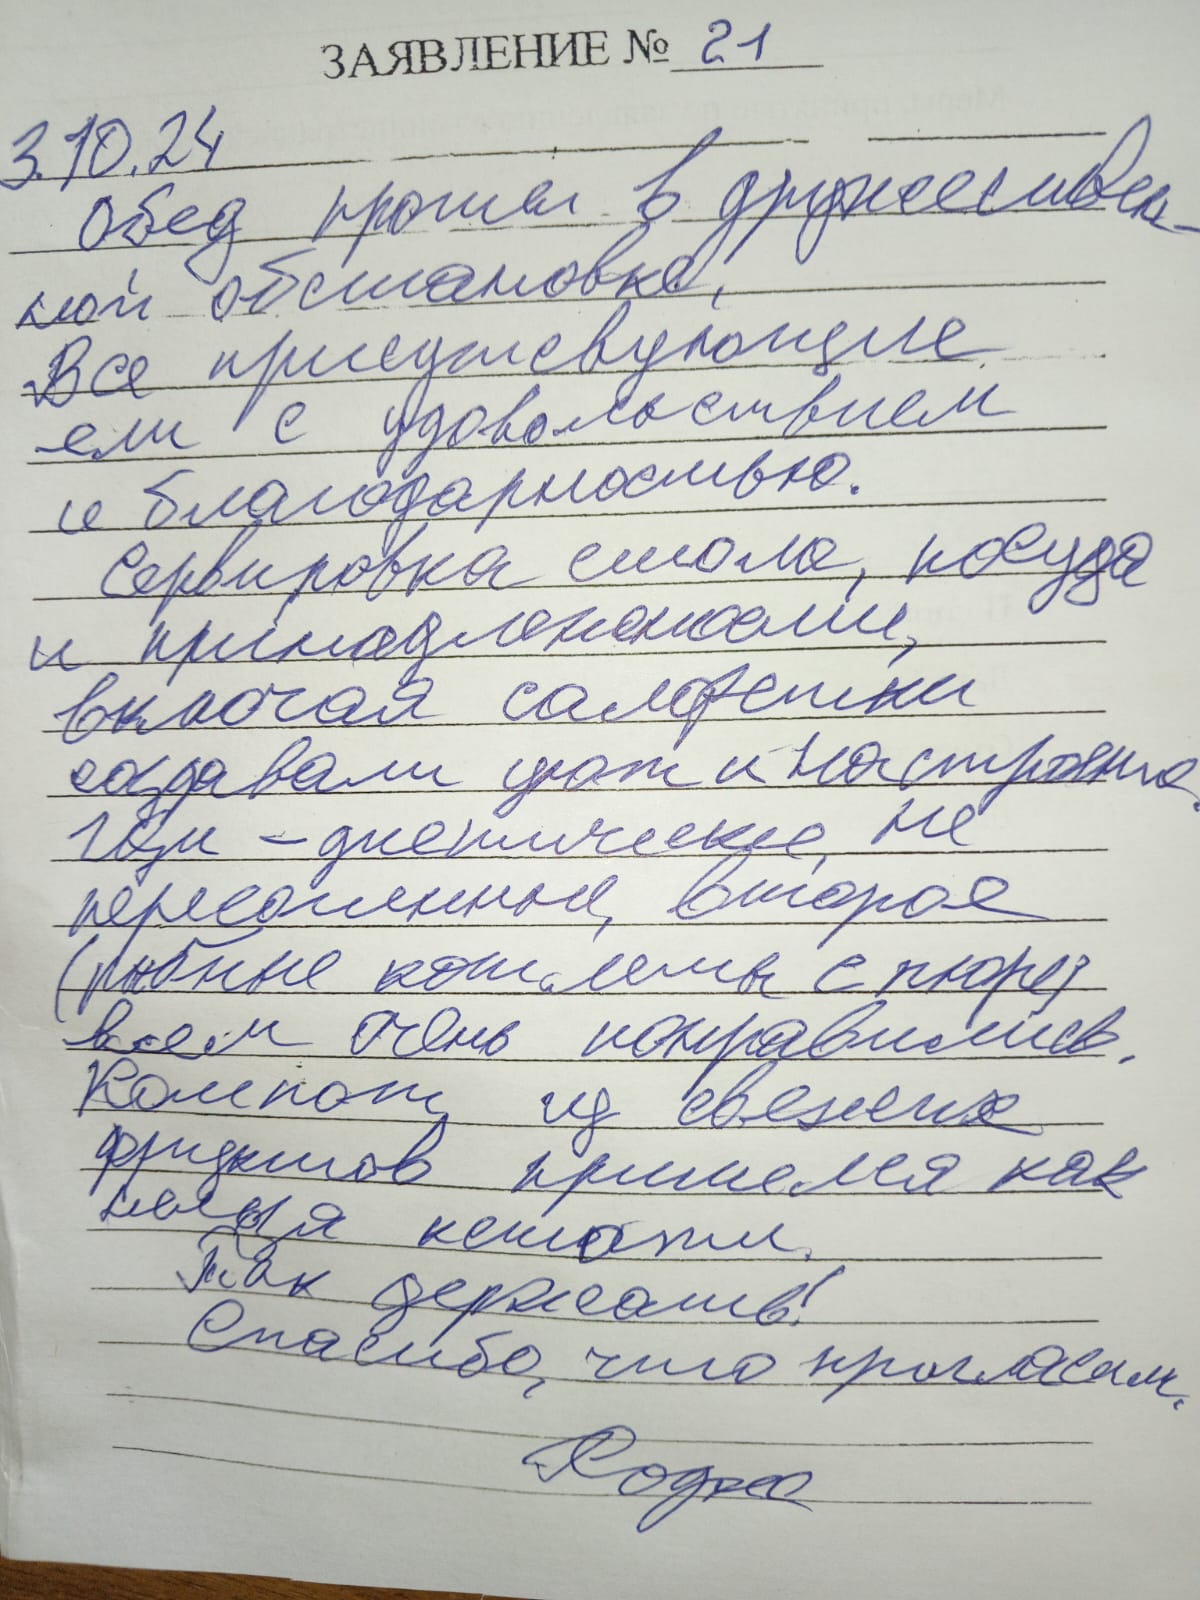 ЗАЯВЛЕНИЕ № 21
3.10.24
Обед прошел в дружествен-
ной обстановке,
Все присутсвующие
ели с удовольствием
и благодарностью.
Сервировка стола, посуда
и принадлежности,
включая салфетки
создавали уют и настроение.
Щи – диетические, не
пересоленные, второе
(рыбные котлеты с пюре)
всем очень понравились.
Компот из свежих
фруктов пришелся как
нельзя кстати.
Так держать!
Спасибо, что пригласили.